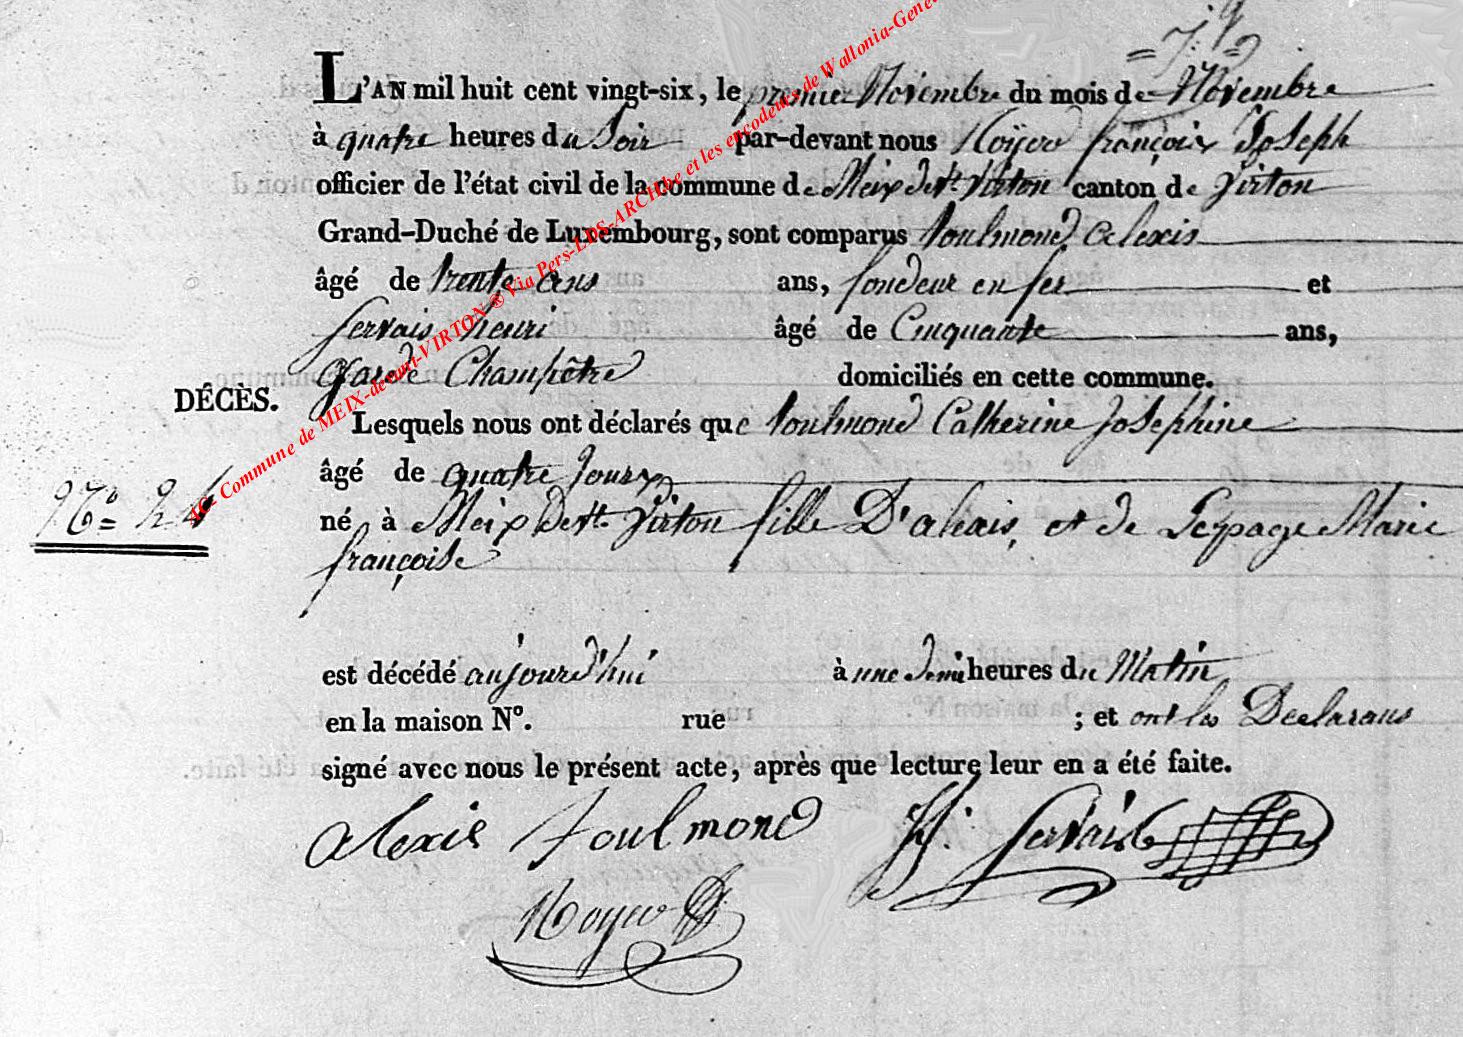 L'AN mil huit cent vingt-six, le premier Novembre du mois de Novembre
à quatre heures du Soir par-devant nous françois Joseph
officier de l'état civil de la commune de Meix devt. Virton canton de Virton
Grand-Duché de Luxembourg, sont comparus toulmond alexis
âgé de trente ans ans, fondeur en fer et
Servais henri âgé de Cinquante ans,
Garde Champêtre domiciliés en cette commune.
DÉCÈS.
Lesquels nous ont déclarés que toulmond Catherine Josephine
âgé de quatre Jours
No. 24
né à Meix devt. Virton fille D'alexis, et de Lepage Marie
françoise
est décédé aujourd'hui à une demi heures du Matin
en la maison No. rue ; et ont les Declarans
signé avec nous le présent acte, après que lecture leur en a été faite.
alexis toulmond h. Servais
AC- Commune de MEIX-devant-VIRTON ® Via Pers-LDS-ARCHbe et les encodeurs de Wallonia-Gene